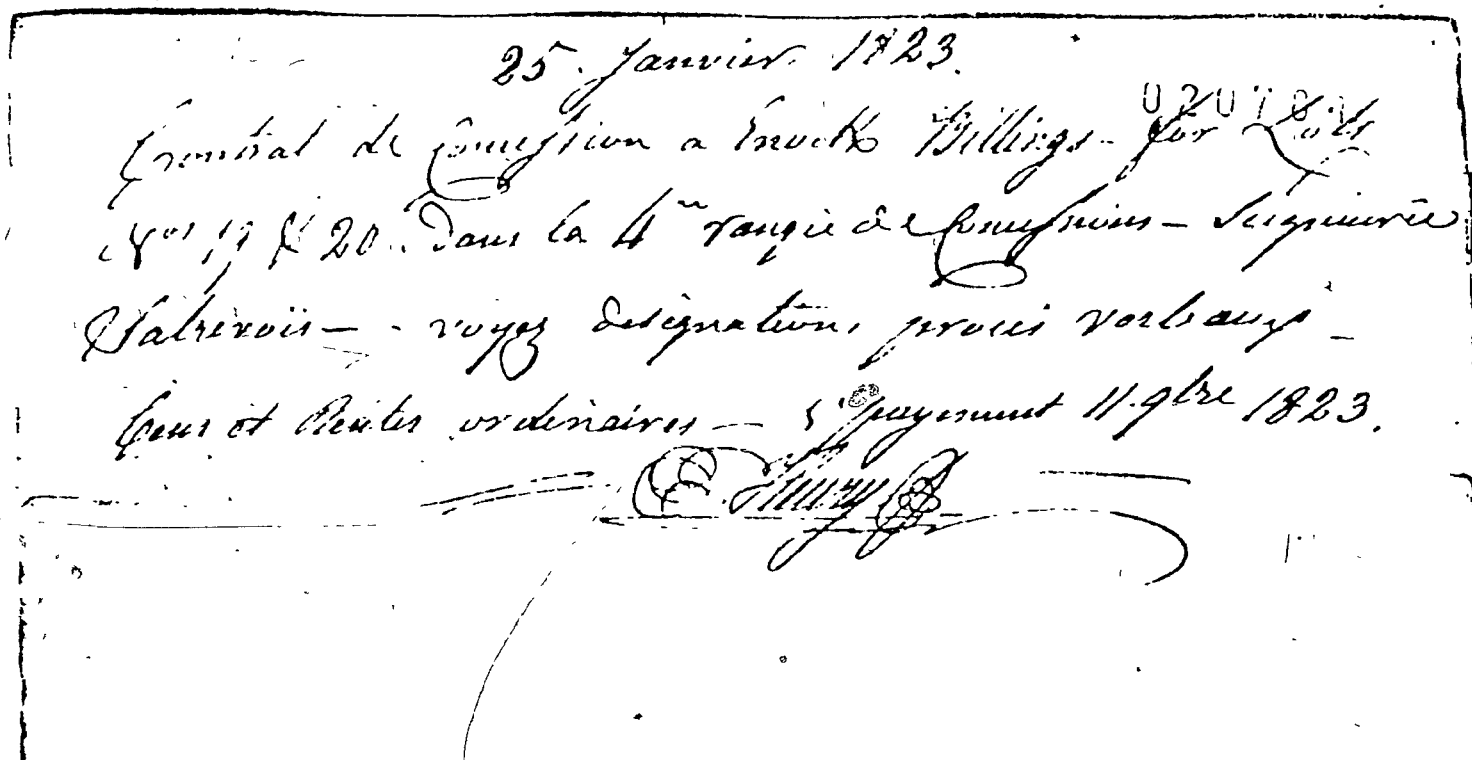 25. Janvier. 1823.
Contrat de Concession a Enock Billings - for Lots
Nos 19 & 20. Dans la 4me rangée de Concessions - Seigneurie
Sabrevois - - voyez designation, procès verbaux -
Cens et Rentes ordinaires - 1r payement 11. 9bre 1823.